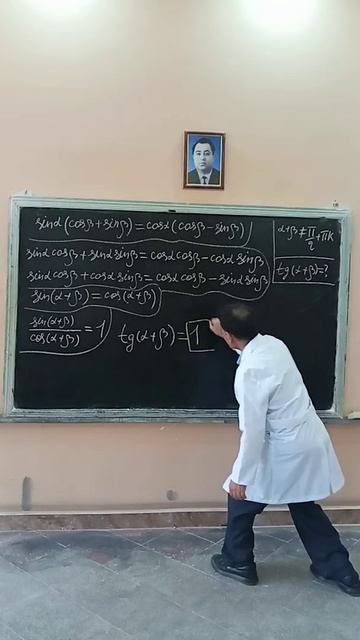 sinα(cosβ+sinβ)=cosα(cosβ-sinβ)
sinα cosβ+sinα sinβ=cosα cosβ-cosα sinβ
sinα cosβ+cosα sinβ=cosα cosβ-sinα sinβ
sin(α+β)=cos(α+β)
sin(α+β)/cos(α+β)=1
tg(α+β)=1
α+β≠π/2+πk
tg(α+β)=?